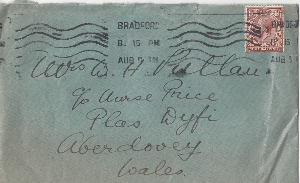 BRADFORD
8. 15 PM
AUG
Mrs W H
c/o Nurse Price
Plas Dyfi
Aberdovey
Wales.